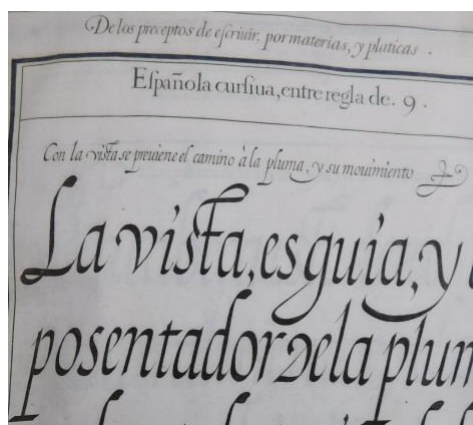 De los preceptos de eſcriuir, por materias, y platicas .
Eſpañola curſiua, entre regla de . 9 .
Con la viſta se preuiene el camino à la pluma, y su mouimiento
La viſta, es guia, y
posentador dela plum